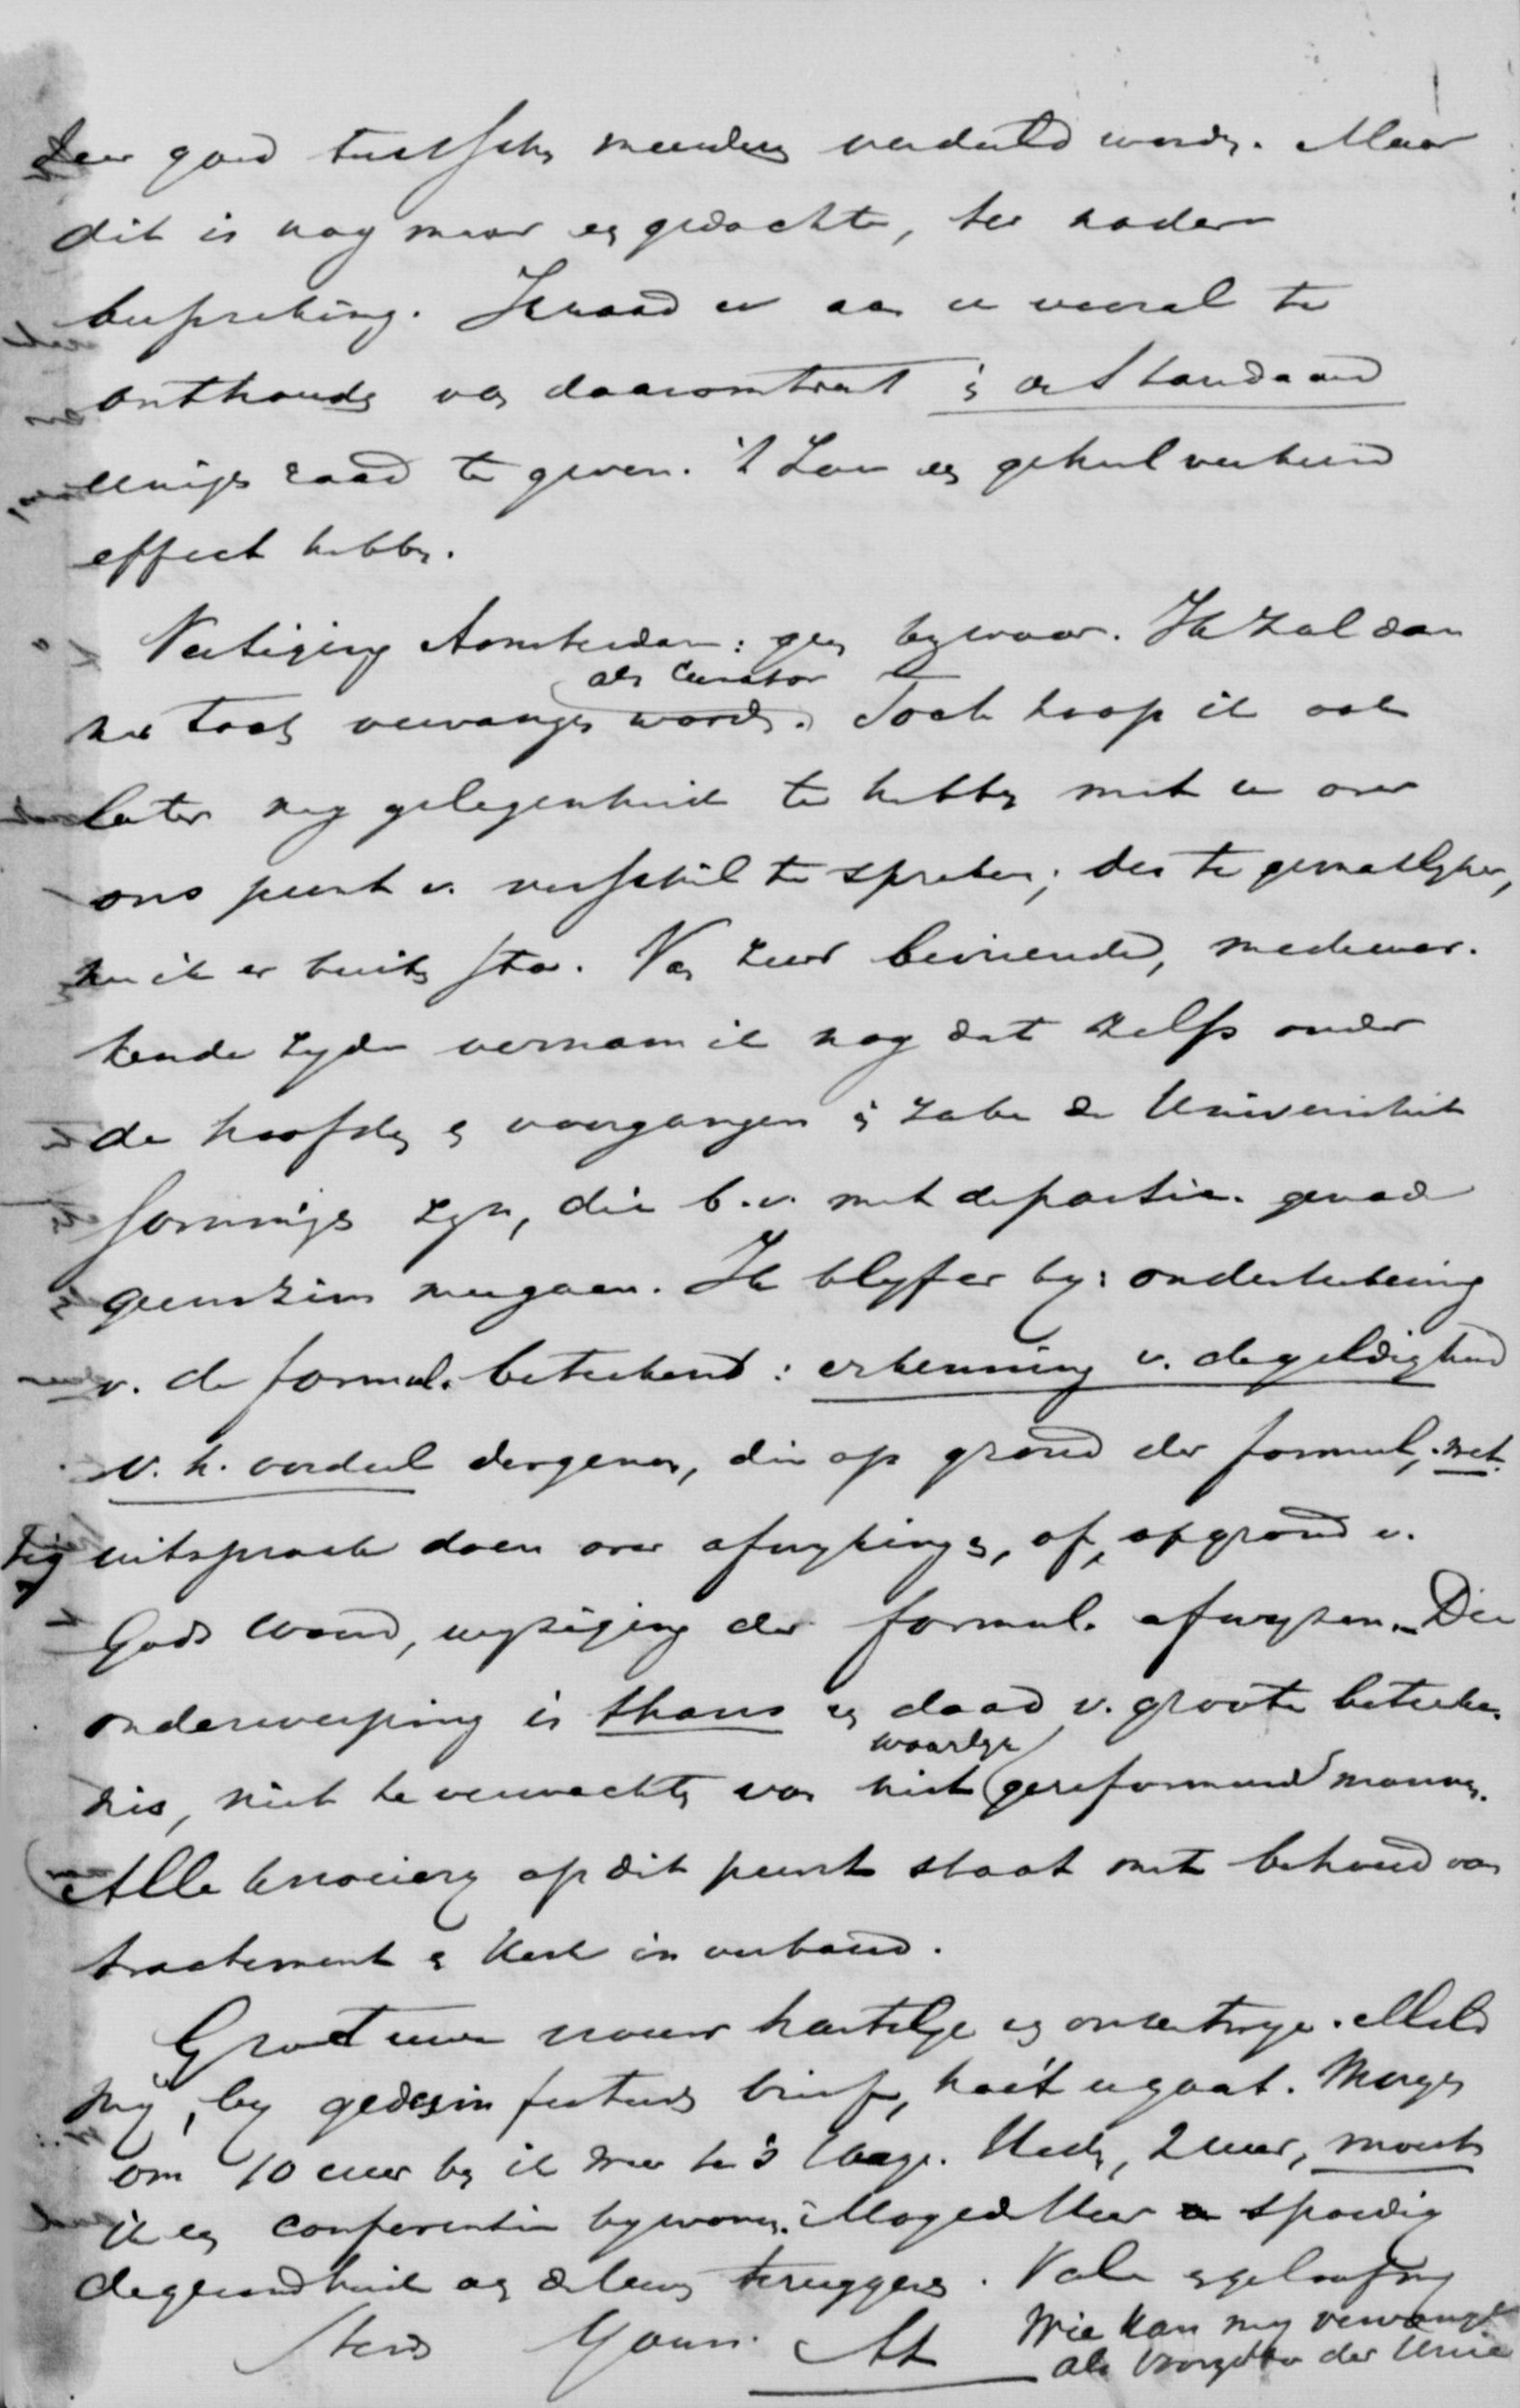 zeer goed tusschen meerdere verdeeld worden. Maar
dit is nog maar eq gedachte, ter nadere
bespreking. Ik raad u aan u vooral te
onthouden van daaromtrent in de Standaard
eenigen raad te geven. 't Zou een geheel verkeerd
effect hebben.
Vestiging Amsterdam: geen bezwaar. Ik zal dan
als Curator
vervangen worden. Toch hoop ik ook
later nog gelegenheid te hebben met u over
ons punt v. verschil te spreken; des te gemakkelyker,
nu ik er buiten sta. Van zeer bevriende, medewer-
kende zyde vernam ik nog dat zelfs onder
de hoofden en voorgangers in zake de Universiteit
sommigen zyn, die b.v. met de praedestin. gerad
geenszins meegaan. Ik blyf er by: onderteekening
v. de formul. beteekent: erkenning v. de geldigheid
v. h. oordeel dergenen, die op grond der formul., wet-
tig uitspraak doen over afwykingen, of, op grond v.
Gods Woord, wyziging der formul. afwyzen. Die
onderwerping is thans een daad v. groote beteeke-
waarlyk
nis, niet te verwachten van niet gereformeerde mannen.
Alle knoeiery op dit punt staat met behoud van
tractement en kerk in verband.
Groet uwe vrouw hartelyk en ontvang. Meld
my, by gedesinfecteerden brief, hoe 't u gaat. Morgen
om 10 uur ben ik weer te 's Hage. Heden, 2 uur, moest
ik een conferentie bywonen. Moge de Heer u spoedig
de gezondheid van de leden teruggeven. Vale en geloof my
Steeds Yours. Wie kan my vervangen
als Voorzitter der Unie